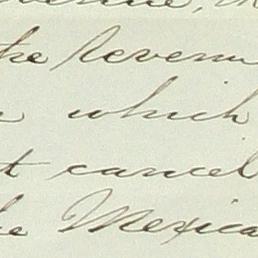 the Revenu
which
t cancel
he Mexica